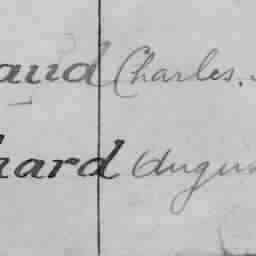 aud Charles.
hard Augus